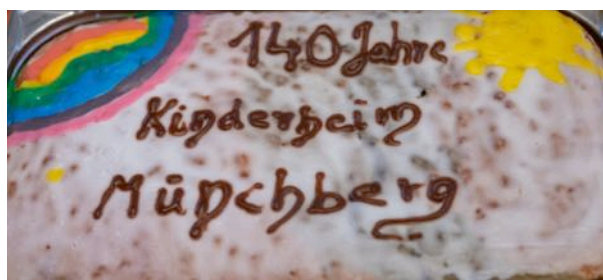 140 Jahre
Kinderheim
Münchberg